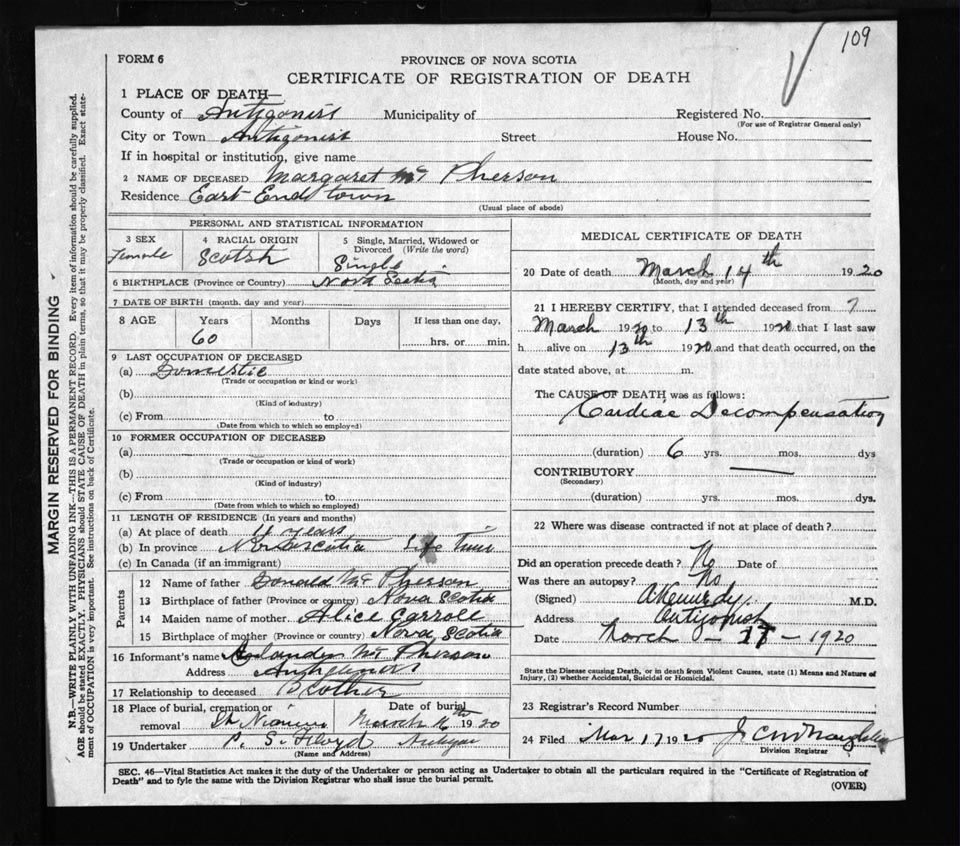 109
FORM 6
PROVINCE OF NOVA SCOTIA
CERTIFICATE OF REGISTRATION OF DEATH
MARGIN RESERVED FOR BINDING
N.B.—WRITE PLAINLY WITH UNFADING INK—THIS IS A PERMANENT RECORD. Every item of information should be carefully supplied.
AGE should be stated EXACTLY. PHYSICIANS should STATE CAUSE OF DEATH in plain terms, so that it may be properly classified. Exact state-
ment of OCCUPATION is very important. See instructions on back of Certificate.
1 PLACE OF DEATH—
County of Antigonish Municipality of Registered No.
(For use of Registrar General only)
City or Town Antigonish Street House No.
If in hospital or institution, give name
2 NAME OF DECEASED Margaret Mc Pherson
Residence East End town
(Usual place of abode)
PERSONAL AND STATISTICAL INFORMATION
3 SEX Female
4 RACIAL ORIGIN Scotsh
5 Single, Married, Widowed or Divorced (Write the word) Single
6 BIRTHPLACE (Province or Country) Nova Scotia
7 DATE OF BIRTH (month, day and year)
8 AGE Years Months Days If less than one day,
60 hrs. or min.
9 LAST OCCUPATION OF DECEASED
(a) Domestic
(Trade or occupation or kind or work)
(b)
(Kind of industry)
(c) From to
(Date from which to which so employed)
10 FORMER OCCUPATION OF DECEASED
(a)
(Trade or occupation or kind of work)
(b)
(Kind of industry)
(c) From to
(Date from which to which so employed)
11 LENGTH OF RESIDENCE (In years and months)
(a) At place of death years
(b) In province Nova Scotia Life Time
(c) In Canada (if an immigrant)
Parents
12 Name of father Donald Mc Pherson
13 Birthplace of father (Province or country) Nova Scotia
14 Maiden name of mother Alice Carroll
15 Birthplace of mother (Province or country) Nova Scotia
16 Informant's name Mc Pherson
Address Antigonish
17 Relationship to deceased Brother
18 Place of burial, cremation or removal St Ninians
Date of burial March 16th 1920
19 Undertaker P. S. Floyd
(Name and Address)
MEDICAL CERTIFICATE OF DEATH
20 Date of death March 14th 1920
(Month, day and year)
21 I HEREBY CERTIFY, that I attended deceased from 7
March 1920 to 13th 1920 that I last saw
h alive on 13th 1920 and that death occurred, on the
date stated above, at m.
The CAUSE OF DEATH was as follows:
Cardiac Decompensation
(duration) 6 yrs. mos. dys
CONTRIBUTORY —
(Secondary)
(duration) yrs. mos. dys.
22 Where was disease contracted if not at place of death?
Did an operation precede death? No Date of
Was there an autopsy? No
(Signed) A Kennedy M.D.
Address Antigonish
Date March - 17 - 1920
State the Disease causing Death, or in death from Violent Causes, state (1) Means and Nature of
Injury, (2) whether Accidental, Suicidal or Homicidal.
23 Registrar's Record Number
24 Filed Mar 17 1920
Division Registrar
SEC. 46—Vital Statistics Act makes it the duty of the Undertaker or person acting as Undertaker to obtain all the particulars required in the "Certificate of Registration of
Death" and to fyle the same with the Division Registrar who shall issue the burial permit.
(OVER)